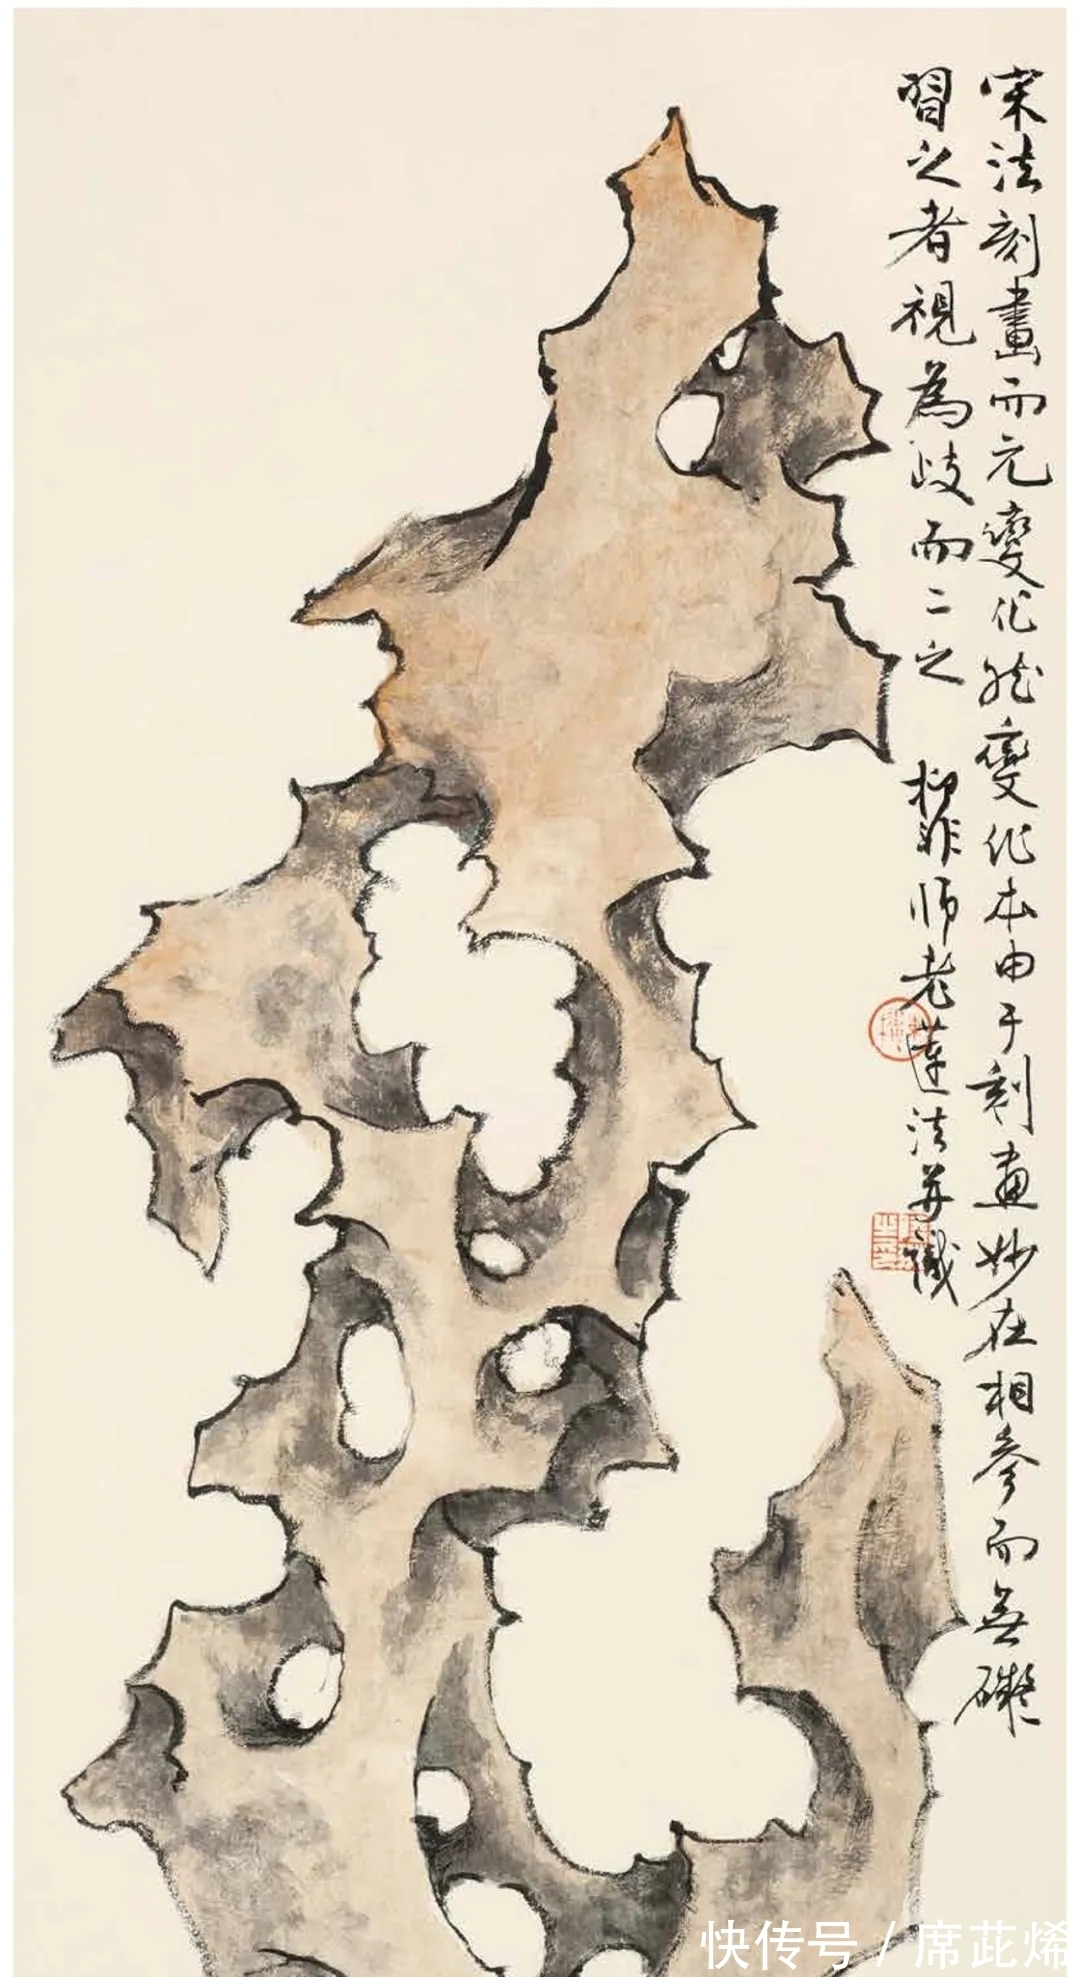 宋法刻畫而元變化然變化本由于刻畫妙在相參而無礙
習之者視為歧而二之 柳非師老蓮法并識
快传号 / 席茈烯